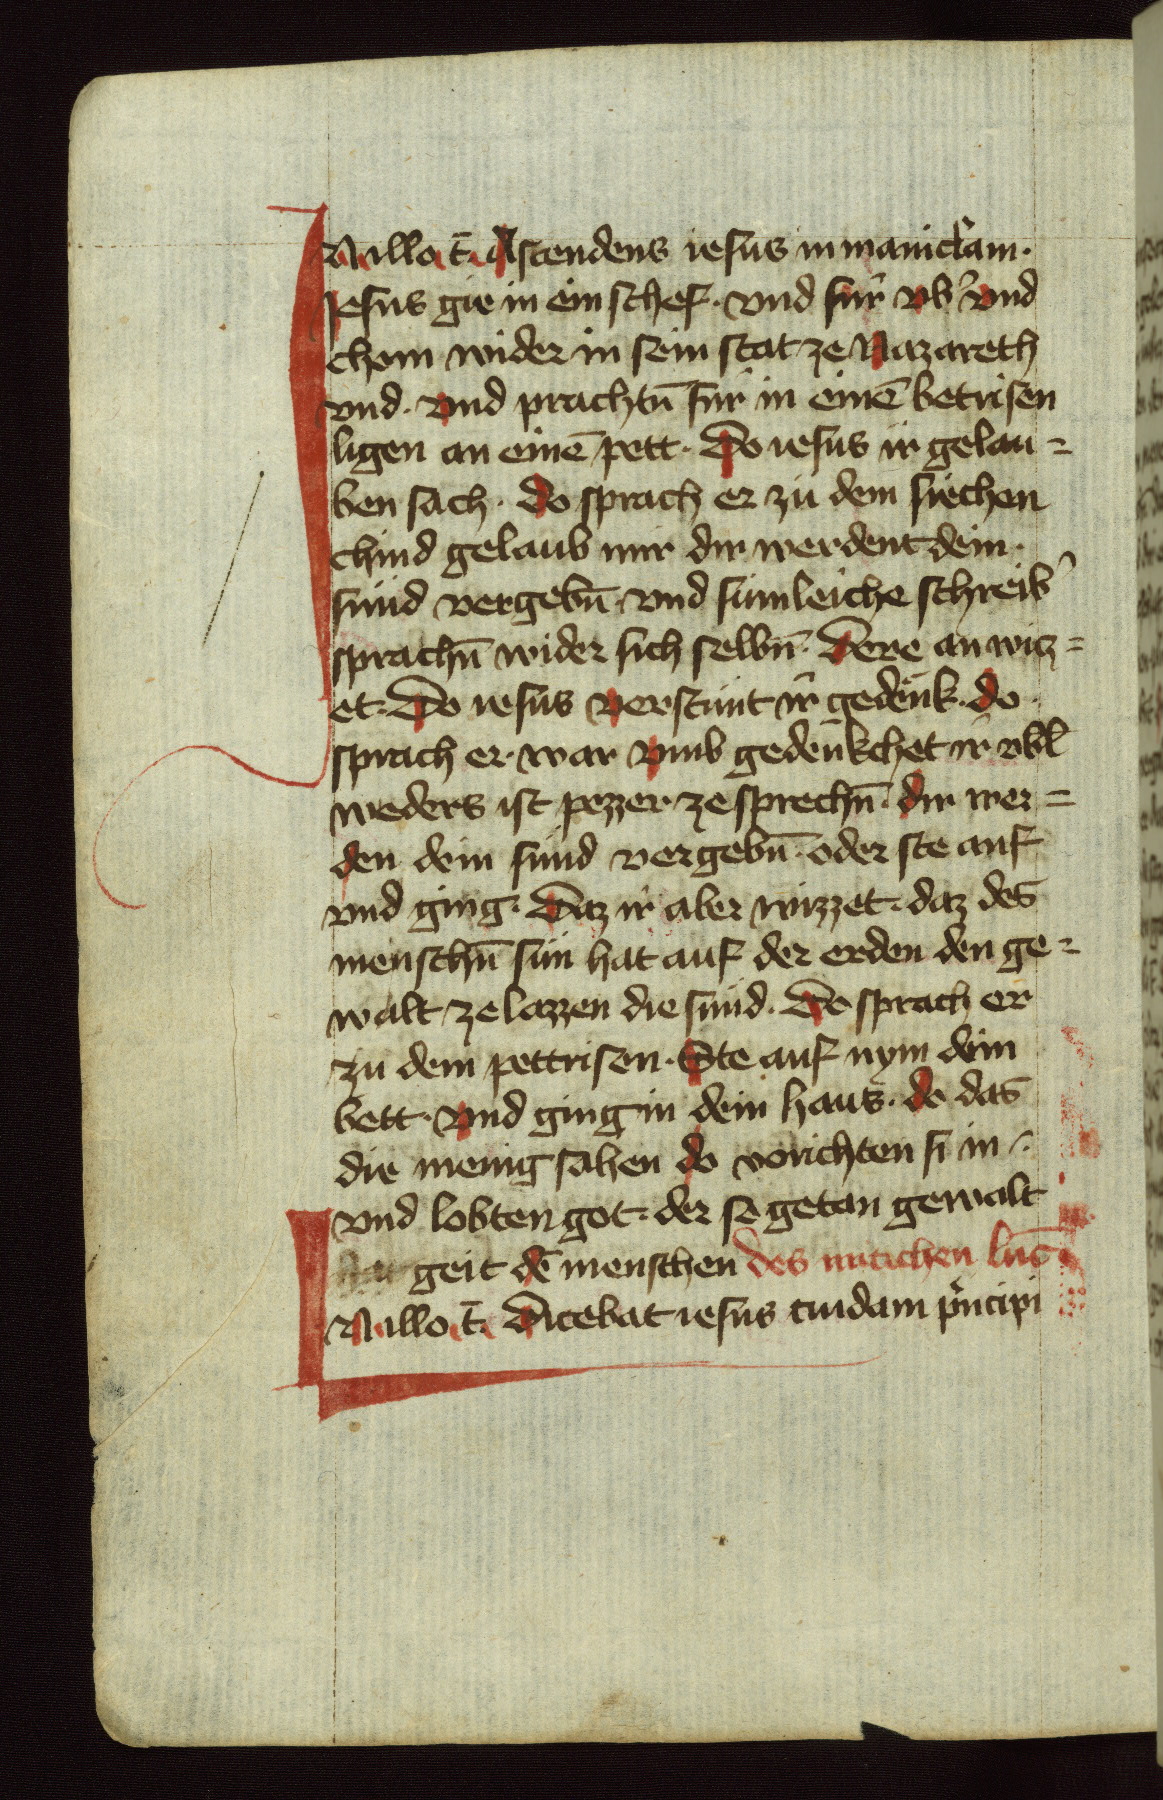 In illo t̄. Ascendens iesus in nauiclam.
Jesus gie in ein schef. vnd fur vb' vnd
chom wider in sein stat ze Nazareth
vnd. vnd prachtn̄ fur in einē betrisen
ligen an einē pett. Do iesus ir gelau=
ben sach. do sprach er zu dem siechen
chind gelaub mir dir werdent dein.
sünd vergebn̄. vnd sümleiche schreib'
sprachn̄ wider sich selbn̄. Dere an wiz=
et. Do iesus verstunt ir gedenk. do
sprach er. war vmb gedenkchet ir vbl
weders ist pezzer ze sprechn̄. dir wer=
den dein sünd vergebn̄. oder ste auf
vnd ging. Daz ir aber wizzet. daz des
menschn̄ sun hat auf der erden den ge=
walt ze lazzen die sünd. Do sprach er
zu dem pettrisen. Ste auf nym dein
bett. vnd ging in dein haus. do das
die menig sahen do vorichten si in.
vnd lobten got. der so getan gewalt
geit dē menschen des mitichen luc̄
In illo t̄. Dicebat iesus cuidam p'ncipi